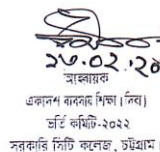 ২৬.০২.২৩
আহবায়ক
একাদশ ব্যবসায় শিক্ষা (দিবা)
ভর্তি কমিটি-২০২২
সরকারি সিটি কলেজ, চট্টগ্রাম।